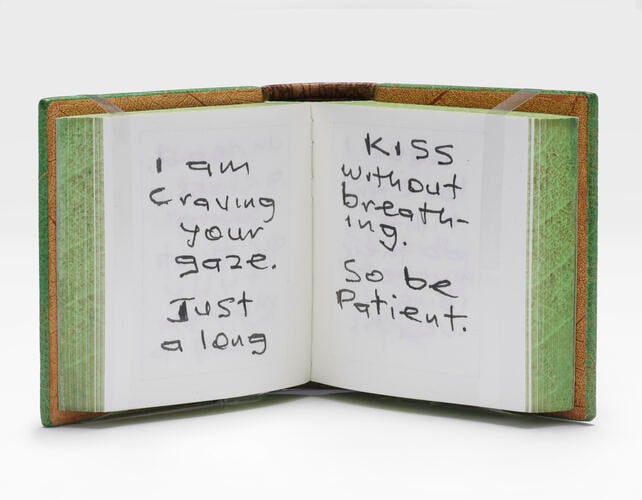 I am
craving
your
gaze.
Just
a long
KISS
without
breath-
ing.
So be
Patient.